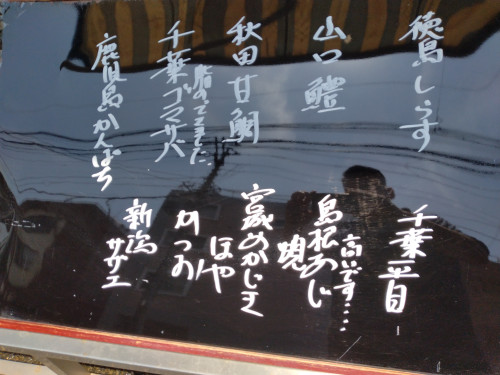 徳島しらす
山口鱧
秋田甘鯛
脂のってました
千葉ゴマサバ
鹿児島かんぱち
千葉平目
高いです....
島根あじ
宮城めかじき
ほや
かつお
新潟
サザエ